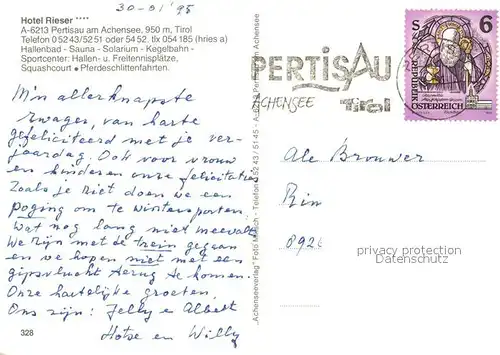 30-01'95
Hotel Rieser ****
A-6213 Pertisau am Achensee, 950 m, Tirol
Telefon 0 52 43/52 51 oder 54 52. tlx 054 185 (hries a)
Hallenbad - Sauna - Solarium - Kegelbahn -
Sportcenter: Hallen- u. Freitennisplätze,
Squashcourt • Pferdeschlittenfahrten.
PERTISAU
ACHENSEE Tirol
S 6
REPUBLIK
ÖSTERREICH
M'n allerknapste
zwager, van harte
gefeliciteerd met je ver-
jaardag. Ook voor vrouw
en kinderen onze felicitaties
Zoals je ziet doen we een
poging om te wintersporten.
Wat nog lang niet meevalt
We zijn met de trein gegaan
en we hopen niet met een
gipsvlucht terug te komen.
Onze hartelijke groeten,
Ons zijn: Jelly e Albert
Hotse en Willy
328
Ale Brouwer
privacy protection
Datenschutz